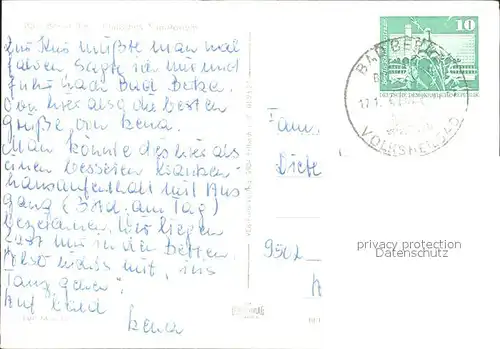 Zur Kur müßte man mal
fahren sagte ich mir und
fuhr nach Bad Berka.
Von hier also die besten
Grüße von Lena.
Man könnte dies hier als
einen besseren Kranken-
hausaufenthalt mit Aus
gang (3 Std. am Tag)
bezeichnen. Wir liegen
fast nur in den Betten.
Also nichts mit, ins
Tanz gehen".
Auf bald
Lena
10
BAD BERKA
VOLKSHEILBAD
Fam.
Diete
9502
privacy protection
Datenschutz